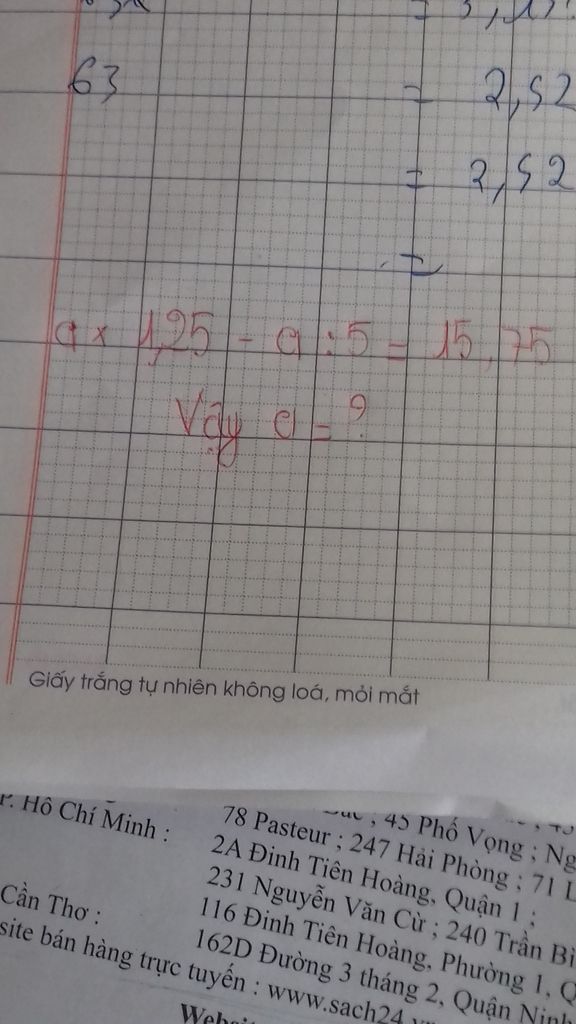 63 = 2,52
= 2,52
=
a × 1,25 - a : 5 = 15,75
Vậy a = ?
Giấy trắng tự nhiên không loá, mỏi mắt
45 Phố Vọng ; Ng
P. Hồ Chí Minh : 78 Pasteur ; 247 Hải Phòng ; 71 L
2A Đinh Tiên Hoàng, Quận 1 ;
231 Nguyễn Văn Cừ ; 240 Trần Bì
Cần Thơ : 116 Đinh Tiên Hoàng, Phường 1, Q
162D Đường 3 tháng 2, Quận Ninh
site bán hàng trực tuyến : www.sach24.v
Websi